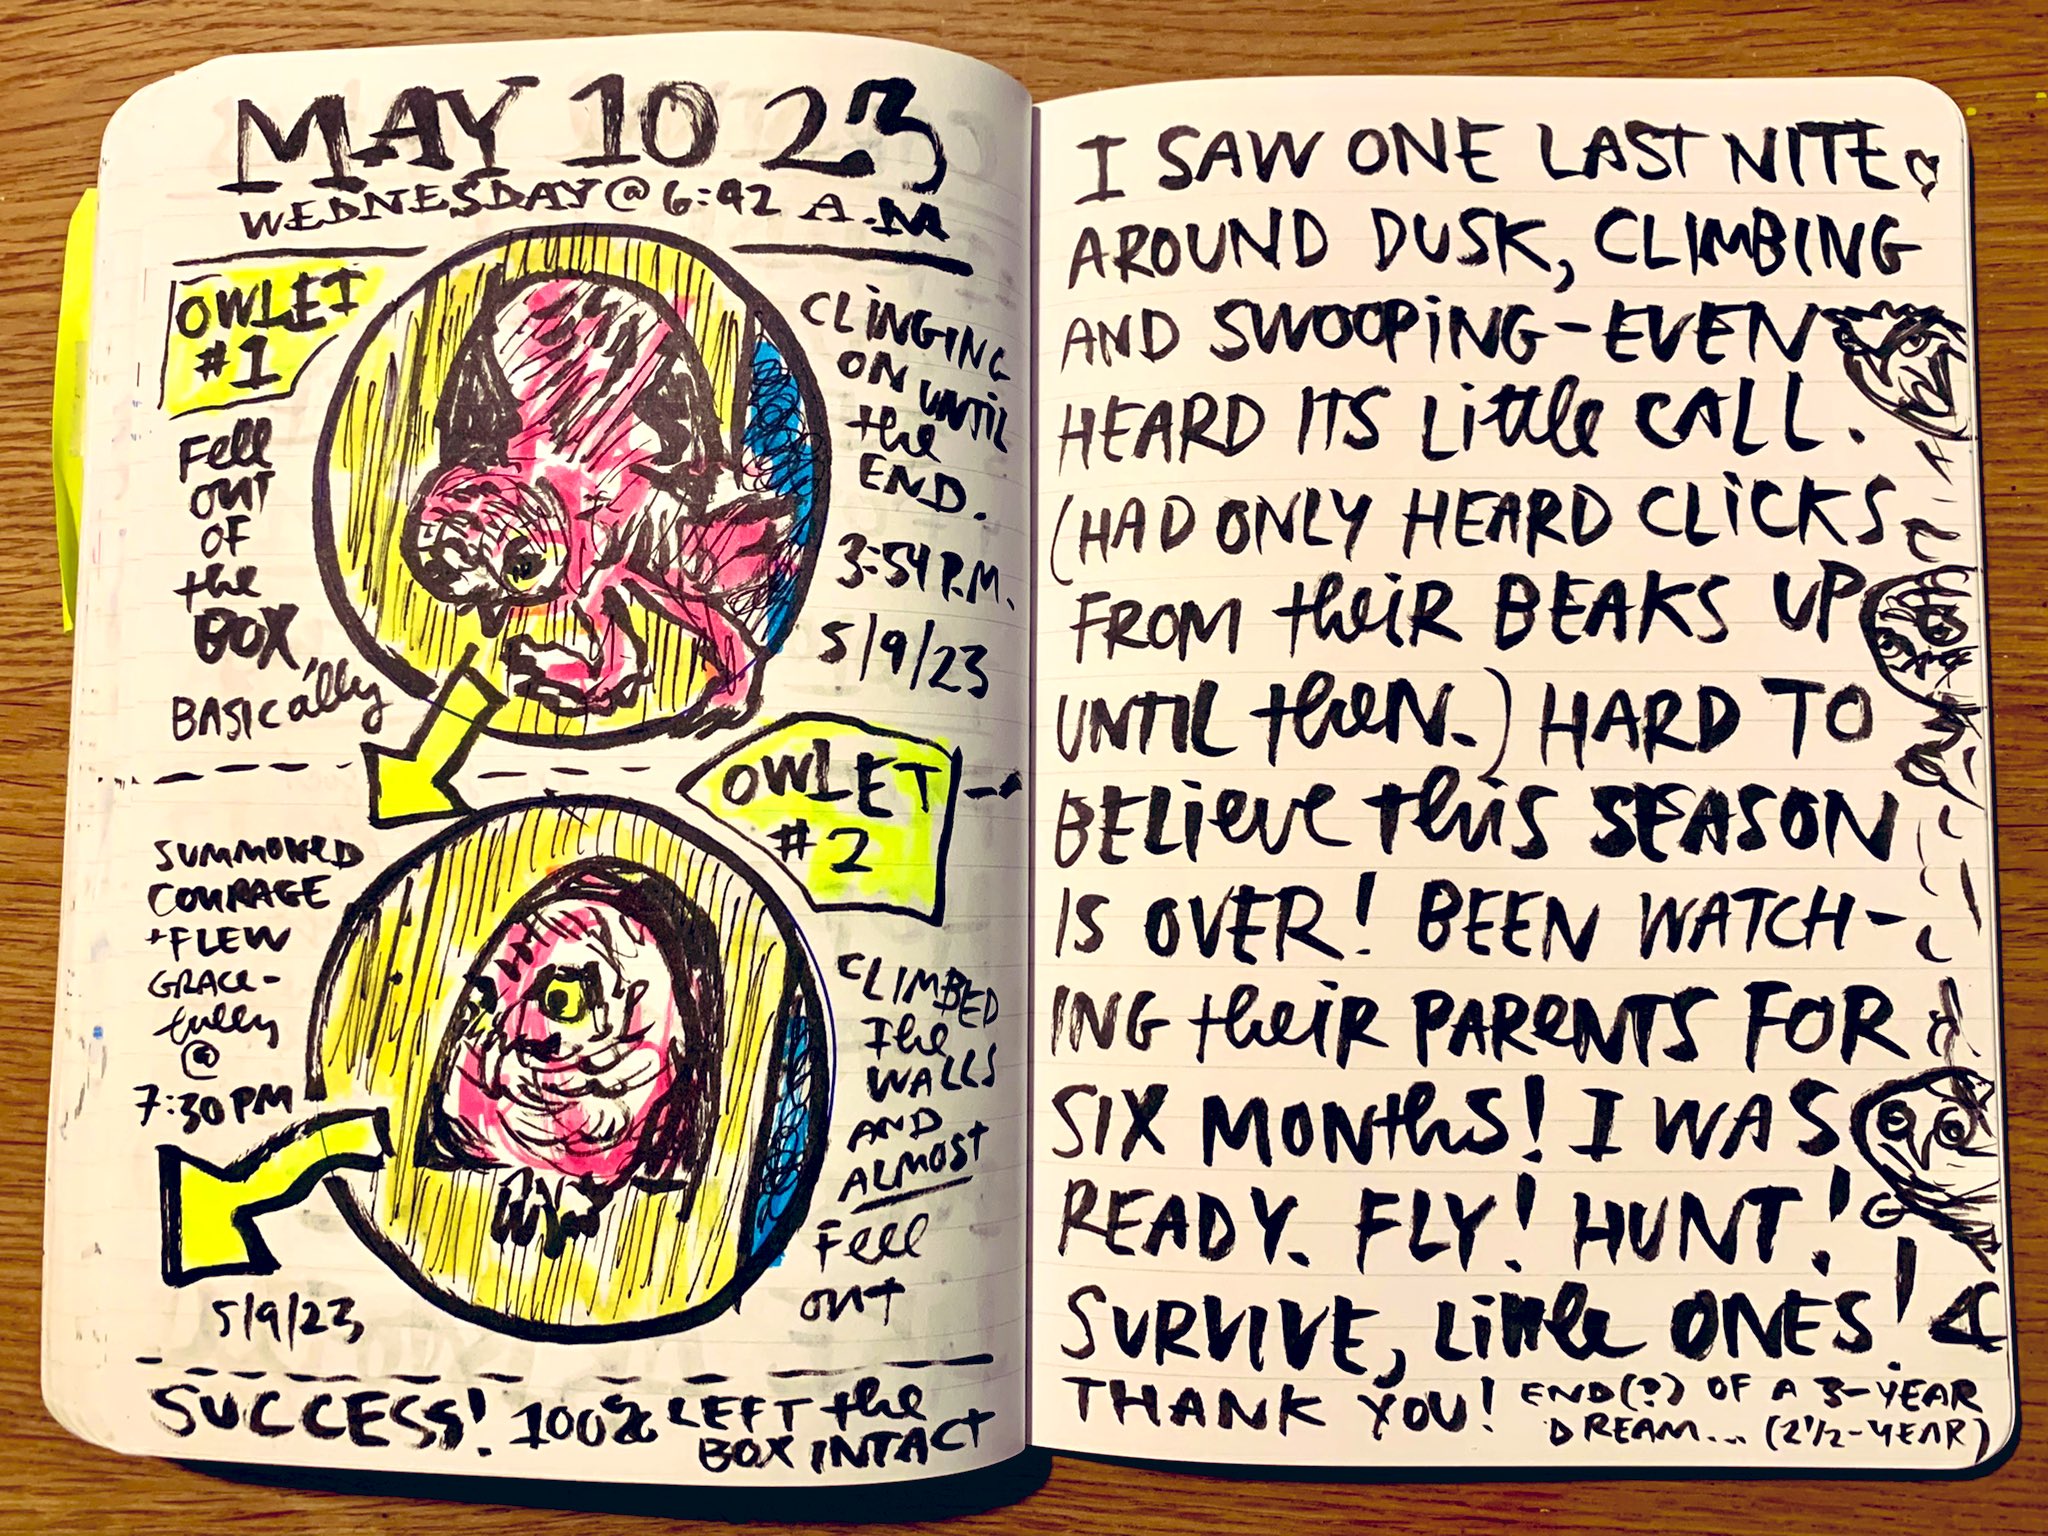 MAY 10 23
WEDNESDAY @ 6:42 A.M
OWLET
#1
Fell
OUT
OF
the
BOX,
BASICally
CLINGING
ON UNTIL
the
END.
3:54 P.M.
5/9/23
OWLET
#2
SUMMONED
COURAGE
+ FLEW
GRACE-
fully
@
7:30 PM
5/9/23
CLIMBED
The
WALLS
AND
ALMOST
Fell
OUT
SUCCESS! 100% LEFT the
BOX INTACT
I SAW ONE LAST NITE
AROUND DUSK, CLIMBING
AND SWOOPING-EVEN
HEARD ITS Little CALL.
(HAD ONLY HEARD CLICKS
FROM theiR BEAKS UP
UNTIL theN.) HARD TO
BELieve this SEASON
IS OVER! BEEN WATCH-
ING theiR PAReNTS FOR
SIX MONths! I WAS
READY. FLY! HUNT!
SURVIVE, Little ONES!
THANK YOU! END(?) OF A 3-YEAR
DREAM... (2 1/2-YEAR)